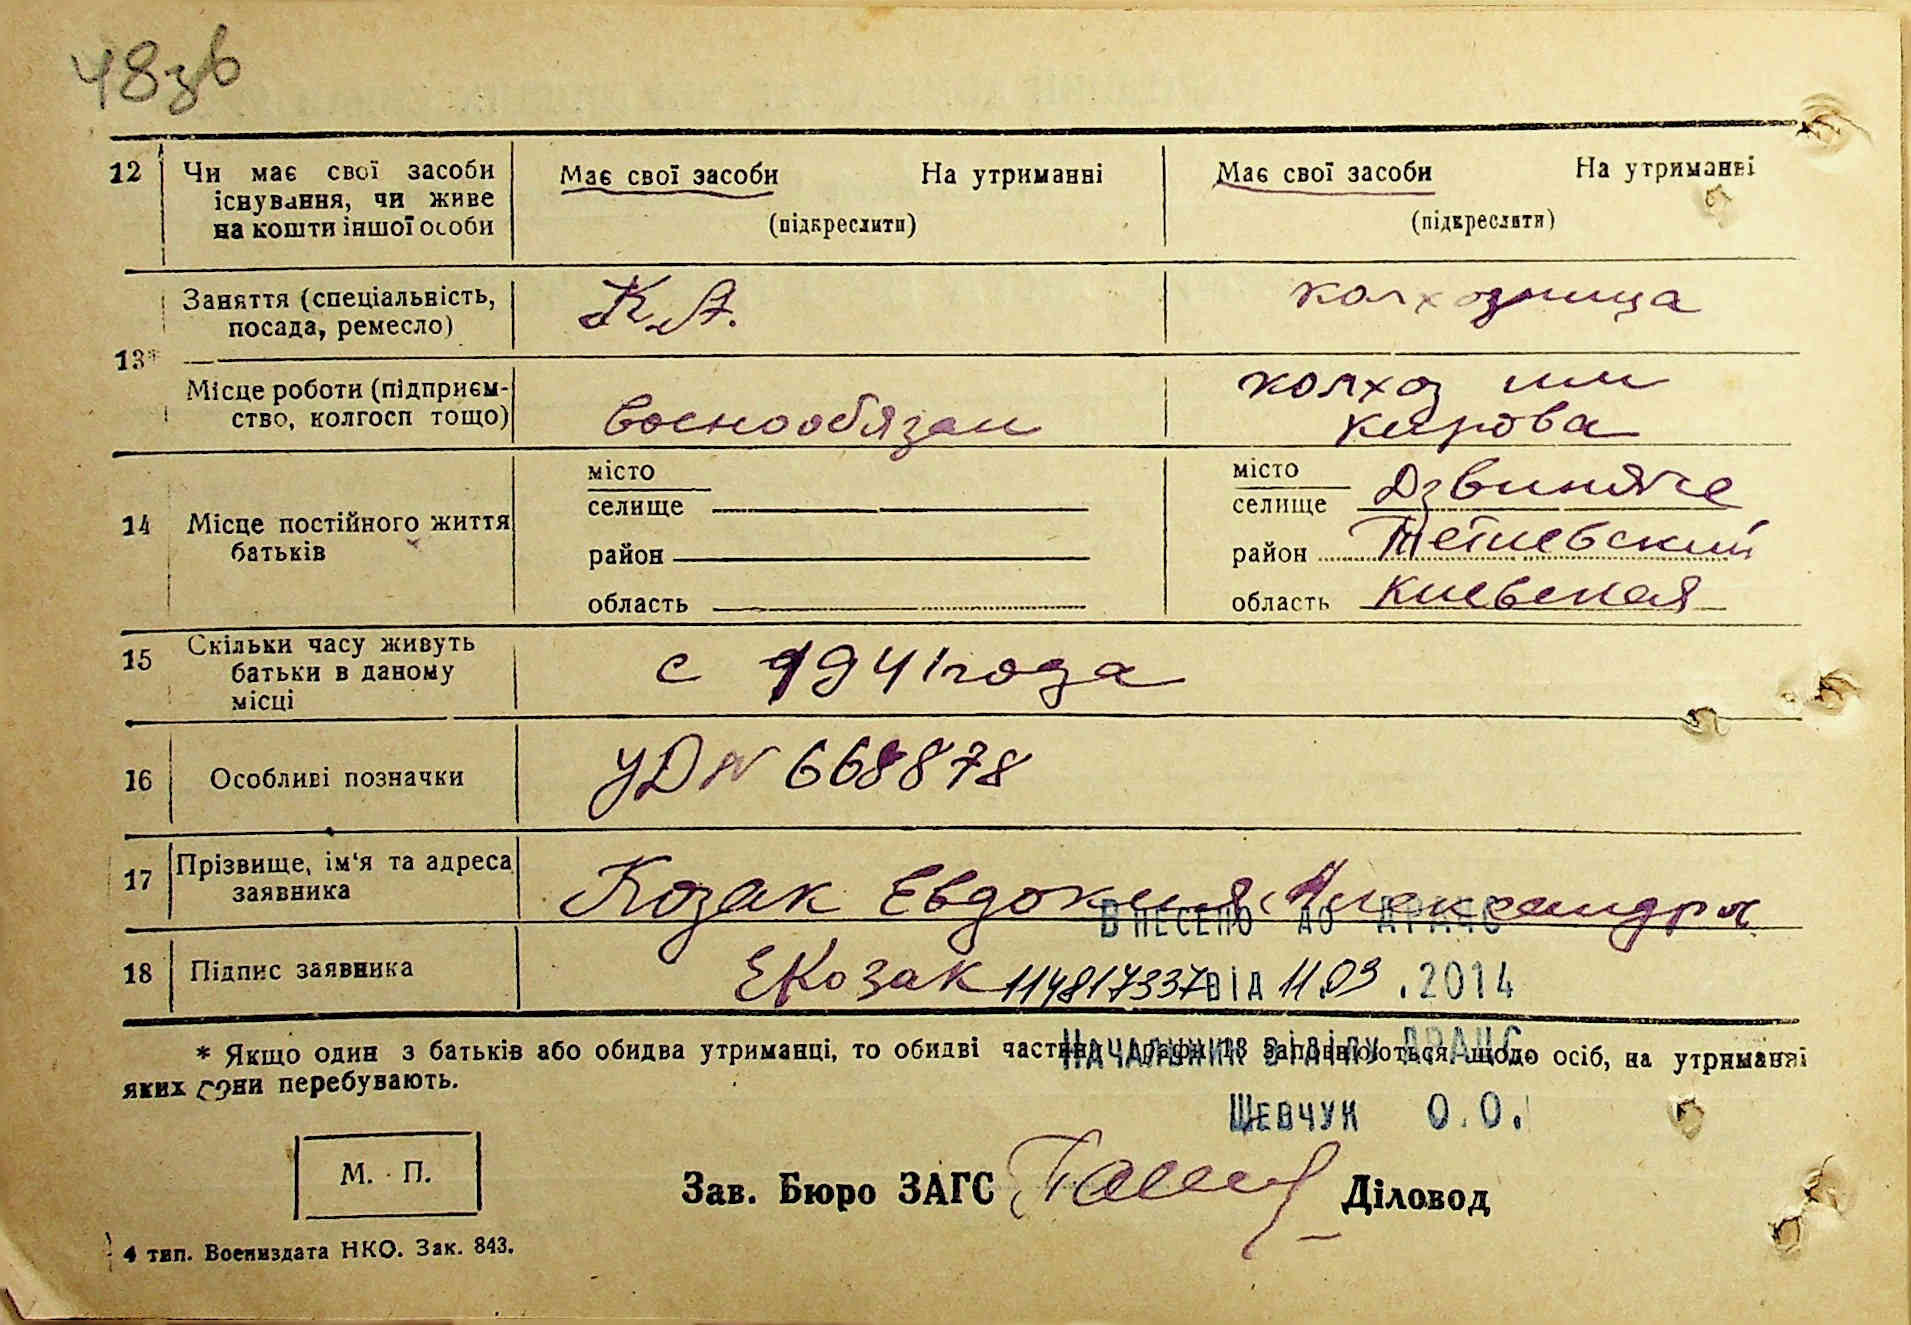 48зв
12 Чи має свої засоби існування, чи живе на кошти іншої особи
Має свої засоби На утриманні
(підкреслити)
Має свої засоби На утриманні
(підкреслити)
13*
Заняття (спеціальність, посада, ремесло)
К.А.
колхозница
Місце роботи (підприєм-
ство, колгосп тощо)
военнообязан
колхоз им
Кирова
14 Місце постійного життя батьків
місто
селище
район
область
місто
селище Дзвиняче
район Тетиевский
область Киевская
15 Скільки часу живуть батьки в даному місці
с 1941 года
16 Особливі позначки
УД № 668878
17 Прізвище, ім'я та адреса заявника
Козак Евдокия Александр
Внесено до ДРАЦС
18 Підпис заявника
ЕКозак 114817337 від 11.03.2014
Начальник відділу ДРАЦС
* Якщо один з батьків або обидва утриманці, то обидві частини графи 13 заповнюються щодо осіб, на утриманні
яких вони перебувають.
Шевчук О.О.
М. П.
Зав. Бюро ЗАГС
Діловод
4 тип. Воениздата НКО. Зак. 843.